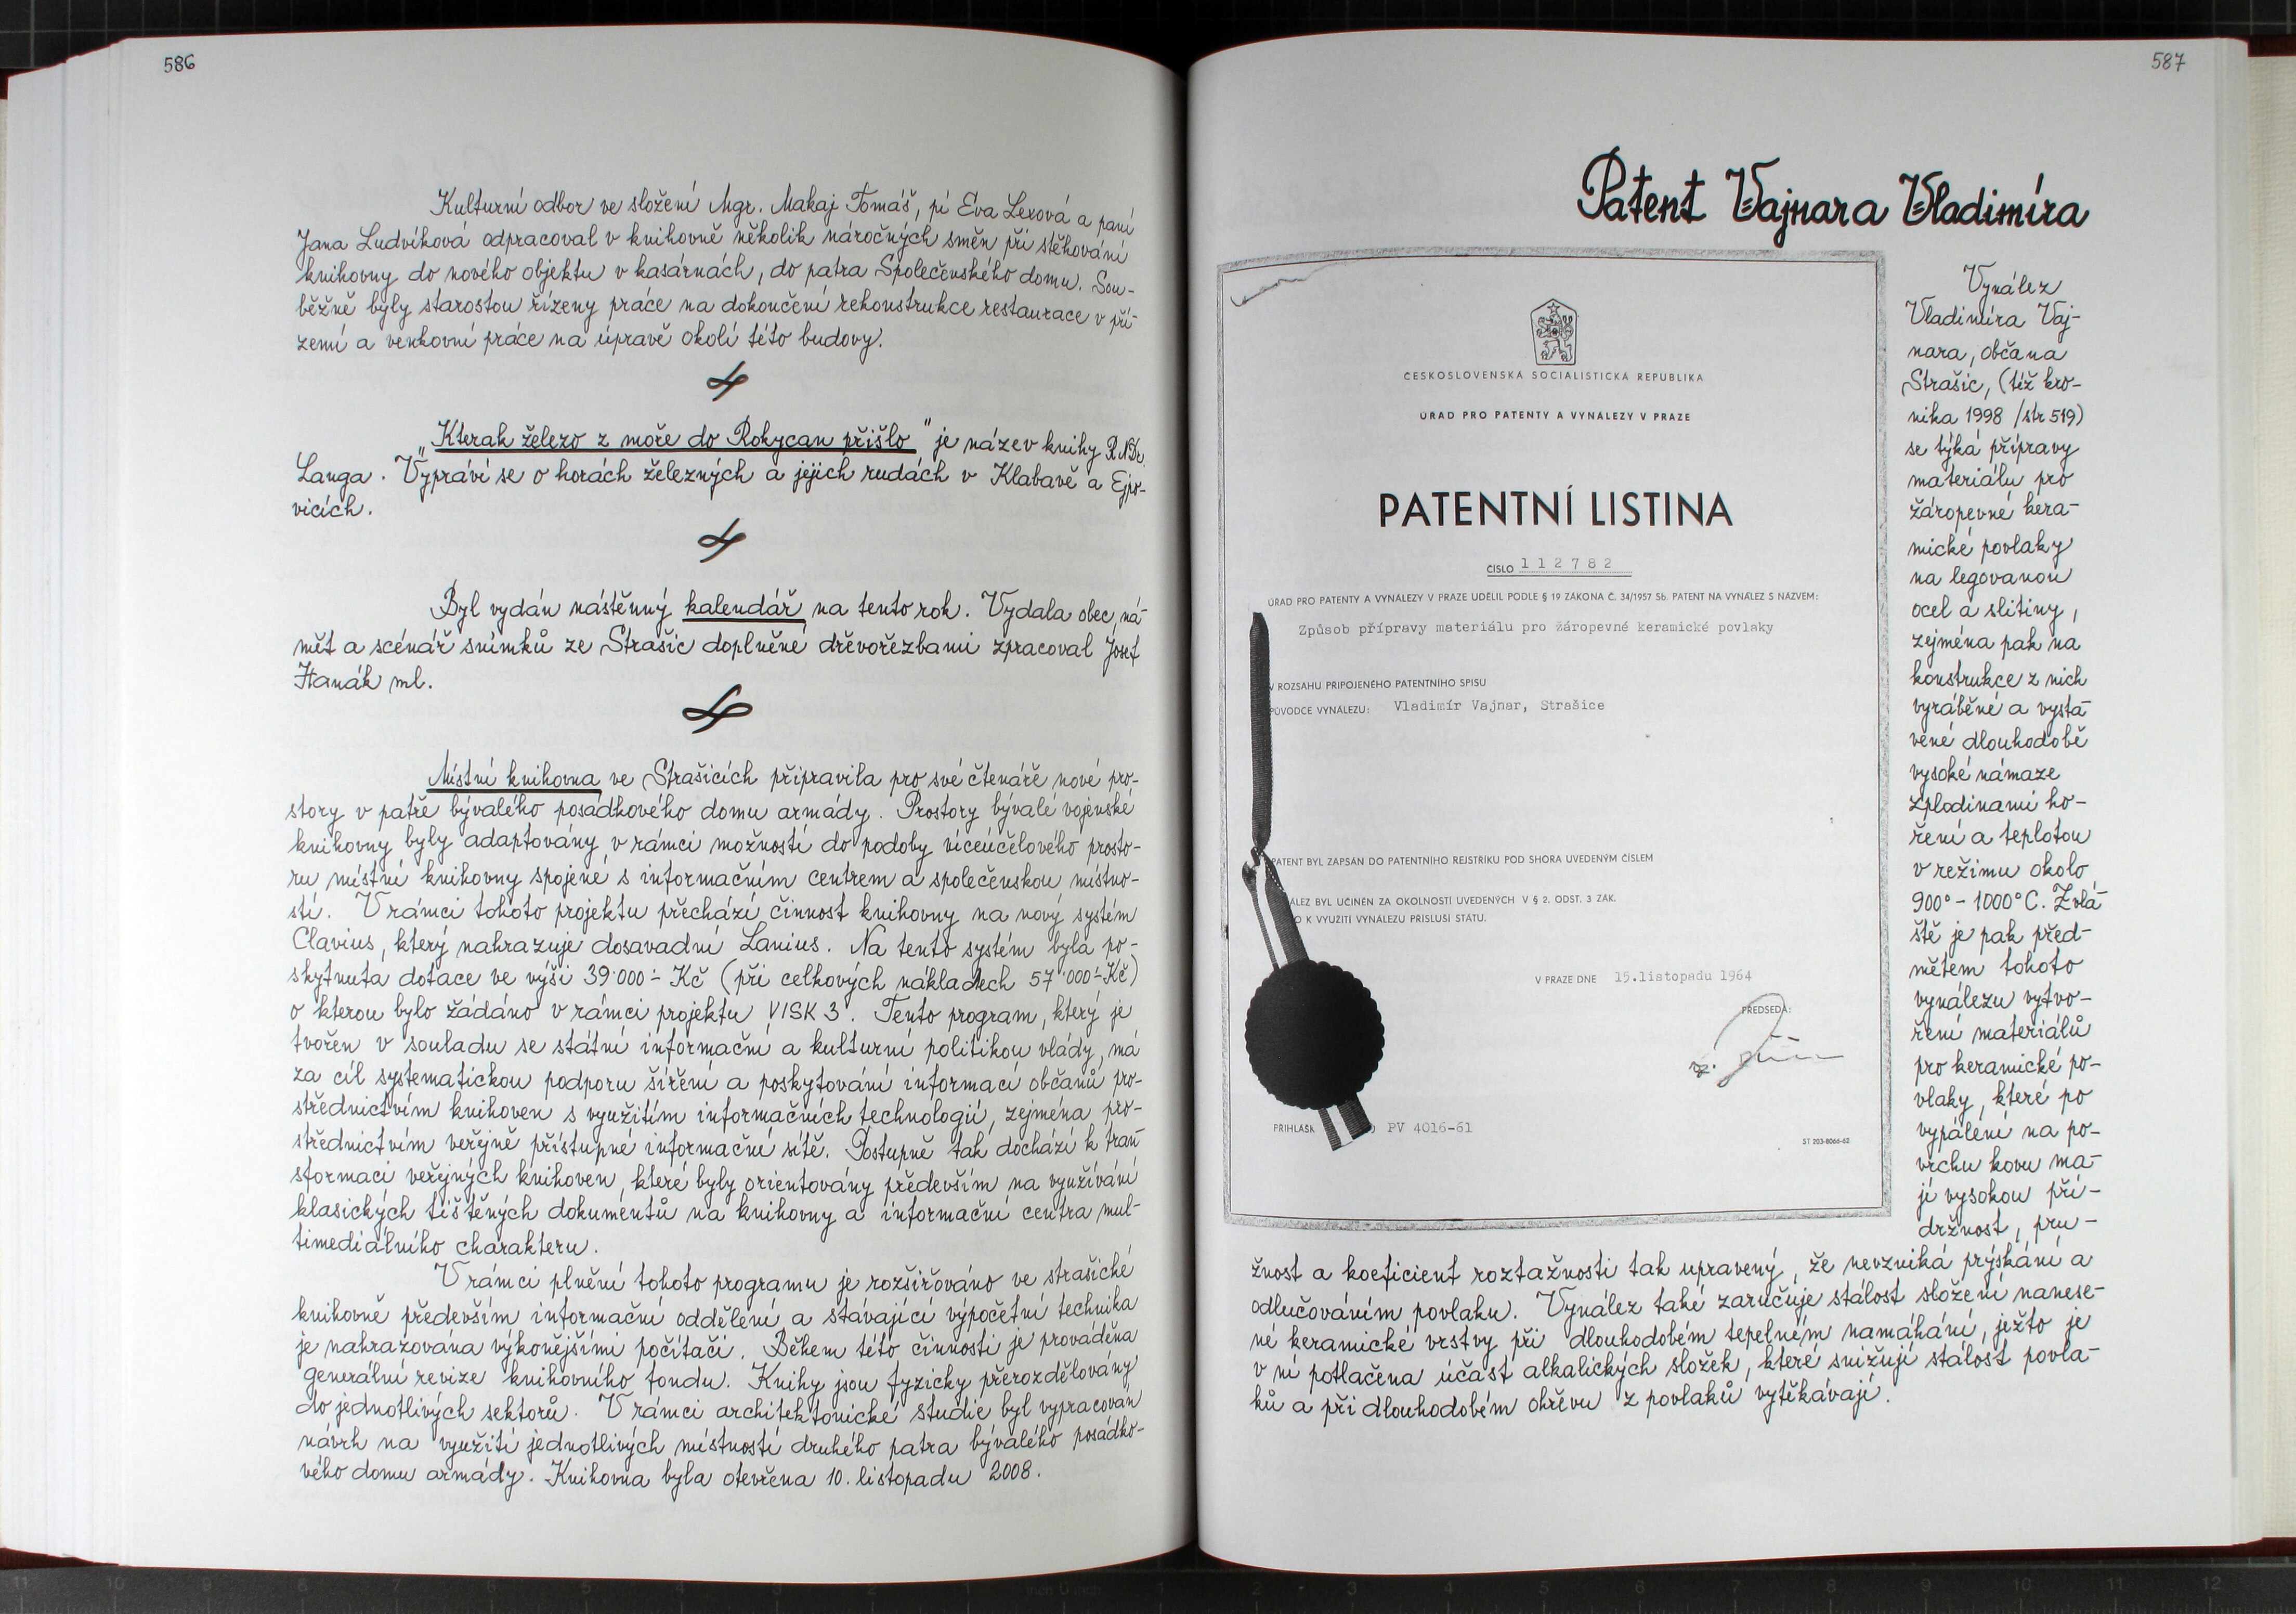 586
Kulturní odbor ve složení Mgr. Makaj Tomáš, pí Eva Lexová a paní
Jana Ludvíková odpracoval v knihovně několik náročných směn při stěhování
knihovny do nového objektu v kasárnách, do patra Společenského domu. Sou-
běžně byly starostou řízeny práce na dokončení rekonstrukce restaurace v pří-
zemí a venkovní práce na úpravě okolí této budovy.
„Kterak železo z moře do Rokycan přišlo" je název knihy RNDr.
Langa. Vypráví se o horách železných a jejich rudách v Klabavě a Ejpo-
vicích.
Byl vydán nástěnný kalendář na tento rok. Vydala obec, ná-
mět a scénář snímků ze Strašic doplněné dřevořezbami zpracoval Josef
Hanák ml.
Místní knihovna ve Strašicích připravila pro své čtenáře nové pro-
story v patře bývalého posádkového domu armády. Prostory bývalé vojenské
knihovny byly adaptovány v rámci možností do podoby víceúčelového prosto-
ru místní knihovny spojené s informačním centrem a společenskou místno-
stí. V rámci tohoto projektu přechází činnost knihovny na nový systém
Clavius, který nahrazuje dosavadní Lanius. Na tento systém byla po-
skytnuta dotace ve výši 39'000.- Kč (při celkových nákladech 57'000.- Kč)
o kterou bylo žádáno v rámci projektu VISK 3. Tento program, který je
tvořen v souladu se státní informační a kulturní politikou vlády, má
za cíl systematickou podporu šíření a poskytování informací občanů pro-
střednictvím knihoven s využitím informačních technologií, zejména pro-
střednictvím veřejně přístupné informační sítě. Postupně tak dochází k tran-
sformaci veřejných knihoven, které byly orientovány především na využívání
klasických tištěných dokumentů na knihovny a informační centra mul-
timediálního charakteru.
V rámci plnění tohoto programu je rozšiřováno ve strašické
knihovně především informační oddělení a stávající výpočetní technika
je nahrazována výkonějšími počítači. Během této činnosti je prováděna
generální revize knihovního fondu. Knihy jsou fyzicky přerozdělovány
do jednotlivých sektorů. V rámci architektonické studie byl vypracován
návrh na využití jednotlivých místností druhého patra bývalého posádko-
vého domu armády. Knihovna byla otevřena 10. listopadu 2008.
587
Patent Vajnara Vladimíra
ČESKOSLOVENSKÁ SOCIALISTICKÁ REPUBLIKA
ÚRAD PRO PATENTY A VYNÁLEZY V PRAZE
PATENTNÍ LISTINA
ČÍSLO 112782
ÚRAD PRO PATENTY A VYNÁLEZY V PRAZE UDĚLIL PODLE § 19 ZÁKONA Č. 34/1957 Sb. PATENT NA VYNÁLEZ S NÁZVEM:
Způsob přípravy materiálu pro žáropevné keramické povlaky
V ROZSAHU PŘIPOJENÉHO PATENTNÍHO SPISU
PŮVODCE VYNÁLEZU: Vladimír Vajnar, Strašice
PATENT BYL ZAPSÁN DO PATENTNÍHO REJSTŘÍKU POD SHORA UVEDENÝM ČÍSLEM
ÁLEZ BYL UČINĚN ZA OKOLNOSTÍ UVEDENÝCH V § 2. ODST. 3 ZÁK.
O K VYUŽITÍ VYNÁLEZU PŘÍSLUŠÍ STÁTU.
V PRAZE DNE 15.listopadu 1964
PŘEDSEDA:
PŘIHLÁŠK PV 4016-61
ST 203-8066-62
Vynález
Vladimíra Vaj-
nara, občana
Strašic, (též kro-
nika 1998 /str 519)
se týká přípravy
materiálu pro
žáropevné kera-
mické povlaky
na legovanou
ocel a slitiny,
zejména pak na
konstrukce z nich
vyráběné a vysta-
vené dlouhodobě
vysoké námaze
zplodinami ho-
ření a teplotou
v režimu okolo
900° - 1000°C. Zvlá-
ště je pak před-
mětem tohoto
vynálezu vytvo-
ření materiálů
pro keramické po-
vlaky, které po
vypálení na po-
vrchu kovu ma-
jí vysokou při-
držnost, pru-
žnost a koeficient roztažnosti tak upravený, že nevzniká prýskání a
odlučováním povlaku. Vynález také zaručuje stálost složení nanese-
né keramické vrstvy při dlouhodobém tepelném namáhání, ježto je
v ní potlačena účast alkalických složek, které snižují stálost povla-
ků a při dlouhodobém ohřevu z povlaků vytěkávají.